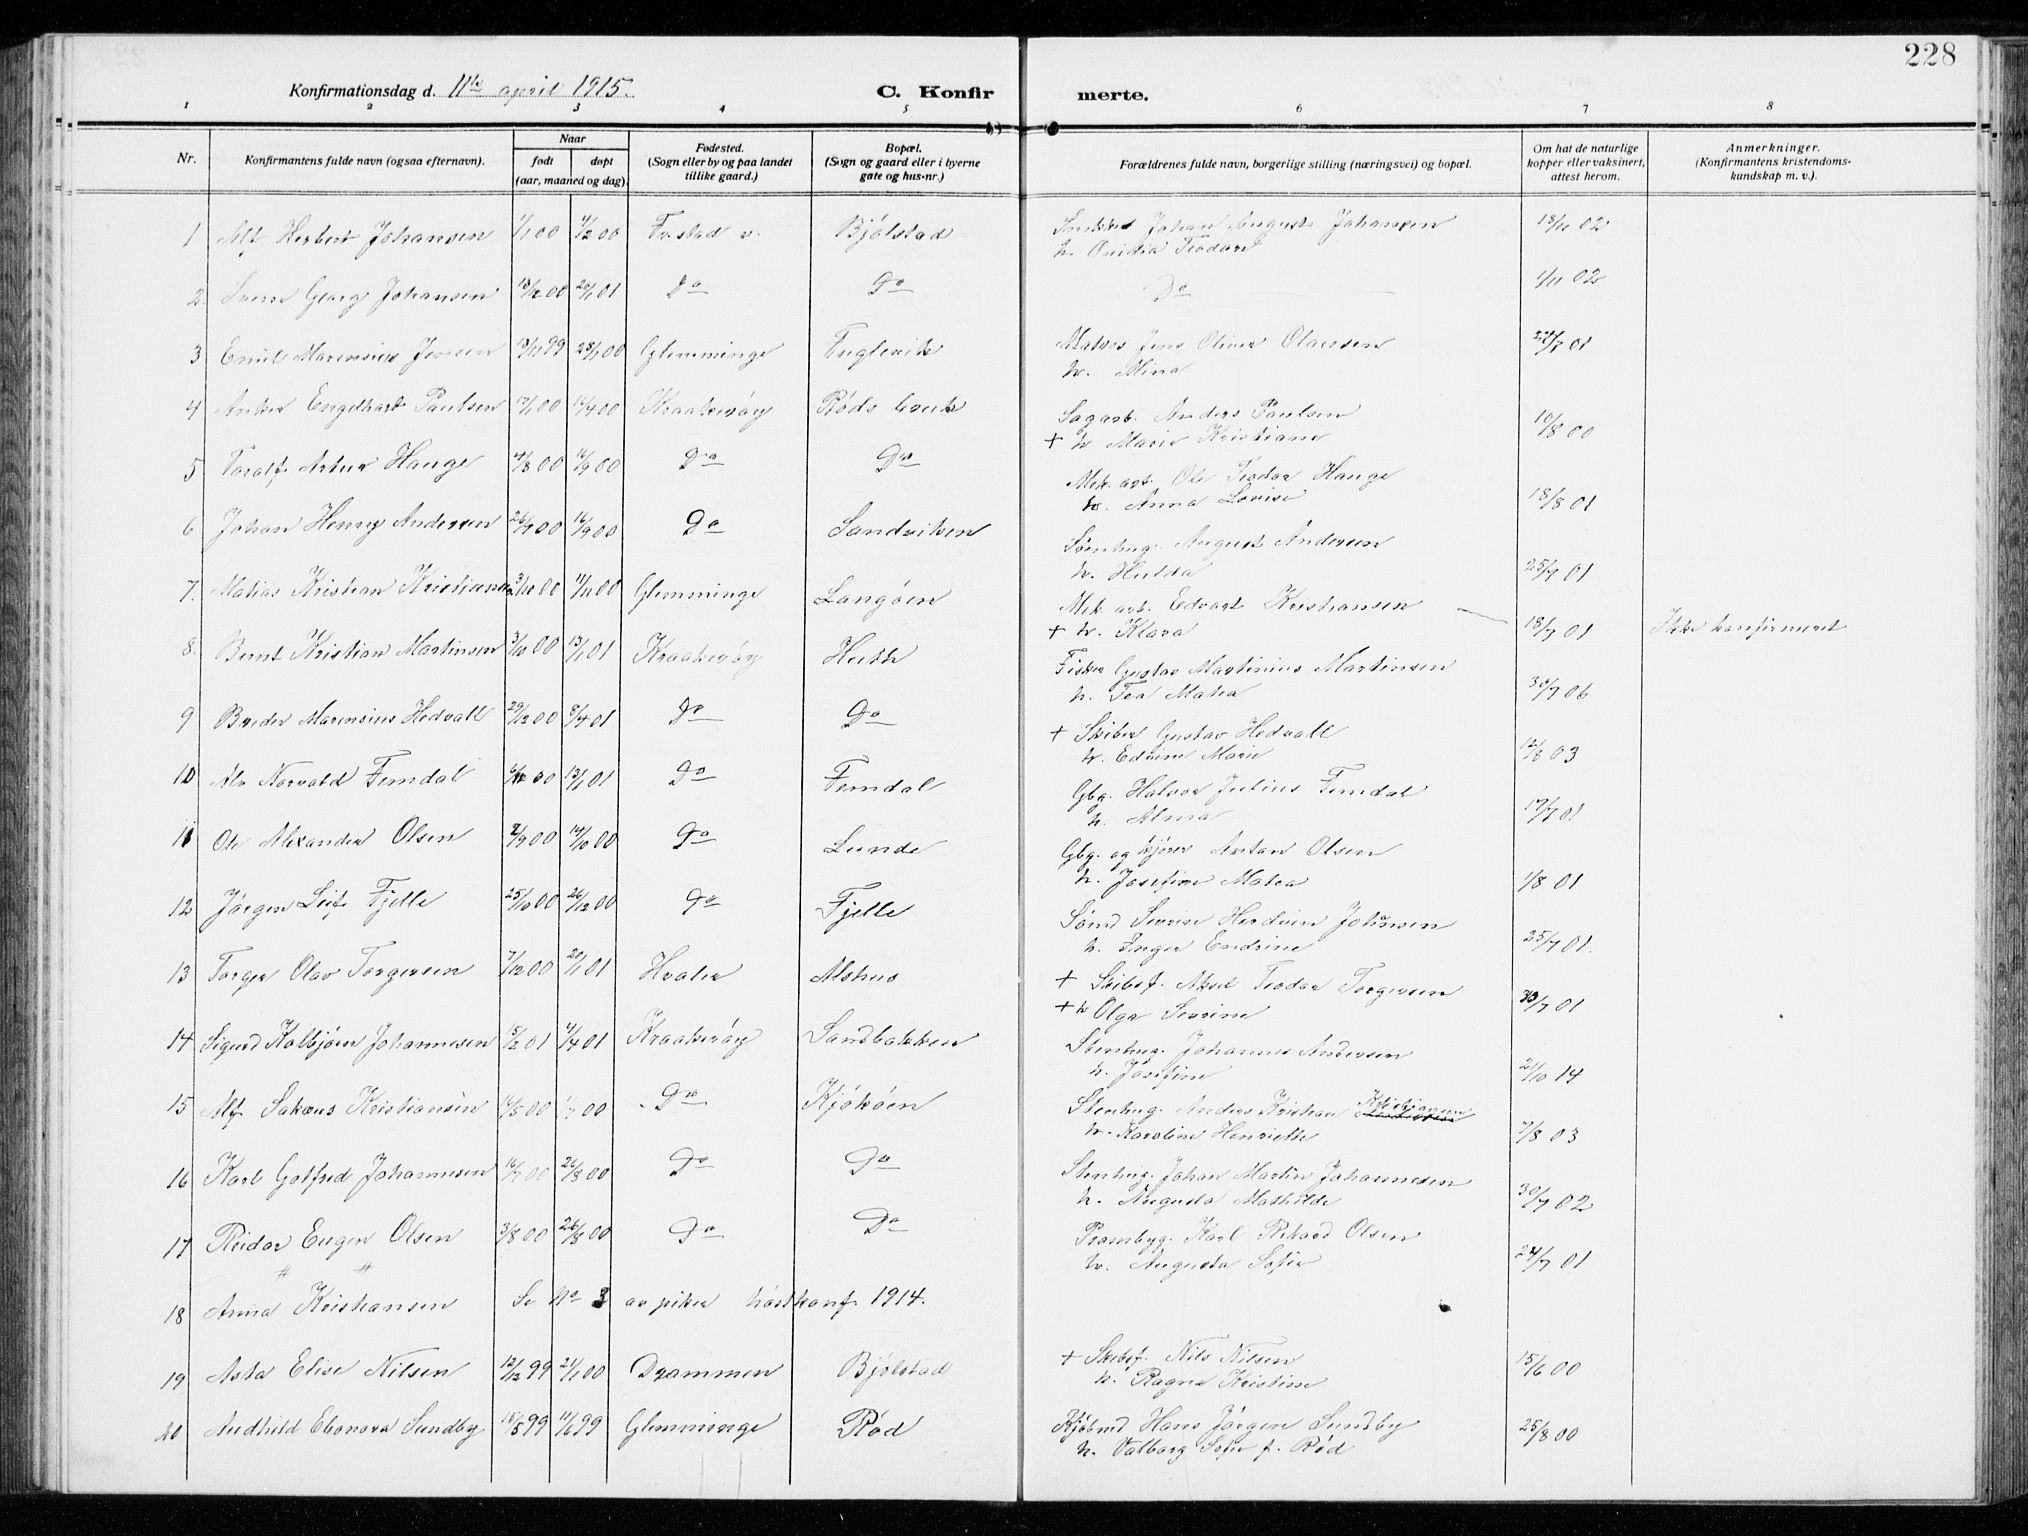 228
Konfirmationsdag d. 11te april 1915.
C. Konfirmerte.
1 2 3 4 5 6 7 8
Nr.
Konfirmantens fulde navn (ogsaa efternavn).
Naar
født
døpt
(aar, maaned og dag).
Fødested.
(Sogn eller by og paa landet
tillike gaard.)
Bopæl.
(Sogn og gaard eller i byerne
gate og hus-nr.)
Forældrenes fulde navn, borgerlige stilling (næringsvei) og bopæl.
Om hat de naturlige
kopper eller vaksinert,
attest herom.
Anmerkninger.
(Konfirmantens kristendoms-
kundskap m. v.).
1 Alf Herbert Johansen 1/1 00 4/2 00 Bjølstad Johan August Johansen 18/10 02
h.
2. Georg Johansen 13/12 00 20/1 01 Do Do Do 1/11 02
3 Emil Marensius Jensen 13/11 99 28/1 00 Glemminge Englevik Matros Jens Oliver Olaussen 01
h. Mina
4 Anker Engelhart Paulsen 16/4 00 Kraakerøy Røds bruk Sagarb. Anders Paulsen 10/8 00
+ h Marie Kristiane
5 Toralf Artur Hauge 4/8 00 16/9 00 Do Do Mek. arb. Ole Teodor Hauge 18/8 01
h. Anna Lovise
6 Johan Henry Andersen 26/7 00 16/9 00 Do Sandviken Stenhug. August Andersen 25/7 01
h. Hulda
7. Matias Kristian Kristiansen 3/10 00 4/11 00 Glemminge Langøen Mek. arb. Edvart Kristiansen 18/7 01 Ikke konfirmeret
+ h. Klara
8. Bernt Kristian Martinsen 3/10 00 13/1 01 Kraakerøy Huth Fisker Gustav Martinius Martinsen 30/7 06
h. Tea Matea
9 Breder Marensius Hedvall 29/12 00 8/4 01 Do Do + Skiber Gustav Hedvall 12/8 03
h. Edvine Marie
10 Alv Norvald Femdal 6/12 00 13/1 01 Do Femdal Gbg. Halvor Julius Femdal 17/7 01
h. Alma
11 Ole Alexander Olsen 2/9 00 14/10 00 Do Lunde Gbg. og kjører Anton Olsen 1/8 01
h. Josefine Matea
12 Jørgen Leif Fjelle 25/10 00 26/12 00 Do Fjelle Johnsen 25/7 01.
h. Inger Endrine
13 Torger Olav Torgersen 7/12 00 20/1 01 Hvaler Alshus + Skibsf. Aksel Teodor Torgersen 01
+ h Olga Severine
14 Sigurd Kolbjørn Johannesen 5/2 01 4/4 01 Kraakerøy Sandbakken Stenhug. Johannes Andersen 21/10 14
h. Josefine
15 Alf Sakæus Kristiansen 14/5 00 1/7 00 Do Kjøkøen Stenhug. Anders Kristian Kristiansen 7/8 03
h. Karoline Henriette
16 Karl Gotfred Johannesen 16/7 00 26/8 00 Do Do Stenhug. Johan Martin Johannesen 30/7 02
h. Augusta Mathilde
17 Reidar Eugen Olsen 3/8 00 26/8 00 Do Do Prambyg. Karl Rikard Olsen 24/7 01
h. Augusta Sofie
18 Anna Kristiansen Se No 3 av piker høstkonf. 1914.
19 Asta Elise Nilsen 12/12 99 21/1 00 Drammen Bjølstad + Skibsf. Nils Nilsen 15/6 00
h. Ragna Kristine
20 Audhild Eleonora Sundby 15/5 99 11/6 99 Glemminge Rød Kjøbmd Hans Jørgen Sundby 25/8 00
h. Valborg Sofie f. Rød